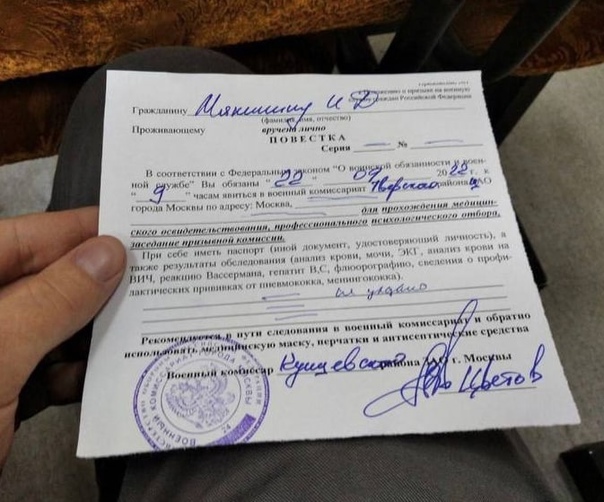 Приложение №1
к Положению о призыве на военную
службу граждан Российской Федерации
Гражданину
И Д
(фамилия, имя, отчество)
Проживающему вручена лично
ПОВЕСТКА
Серия № 
В соответствии с Федеральным законом "О воинской обязанности и воен-
ной службе" Вы обязаны "22" 09 2022 г. к
"9" часам явиться в военный комиссариат Тверского района ЦАО
города Москвы по адресу: Москва,
для прохождения медицин-
ского освидетельствования, профессионального психологического отбора,
заседание призывной комиссии.
При себе иметь паспорт (иной документ, удостоверяющий личность), а
также результаты обследования (анализ крови, мочи, ЭКГ, анализ крови на
ВИЧ, реакцию Вассермана, гепатит В,С, флюорографию, сведения о профи-
лактических прививках от пневмококка, менингококка).
Рекомендуется в пути следования в военный комиссариат и обратно
использовать медицинскую маску, перчатки и антисептические средства
Военный комиссар района ЗАО г. Москвы
Цветов
ВОЕННЫЙ КОМИССАРИАТ ГОРОДА МОСКВЫ